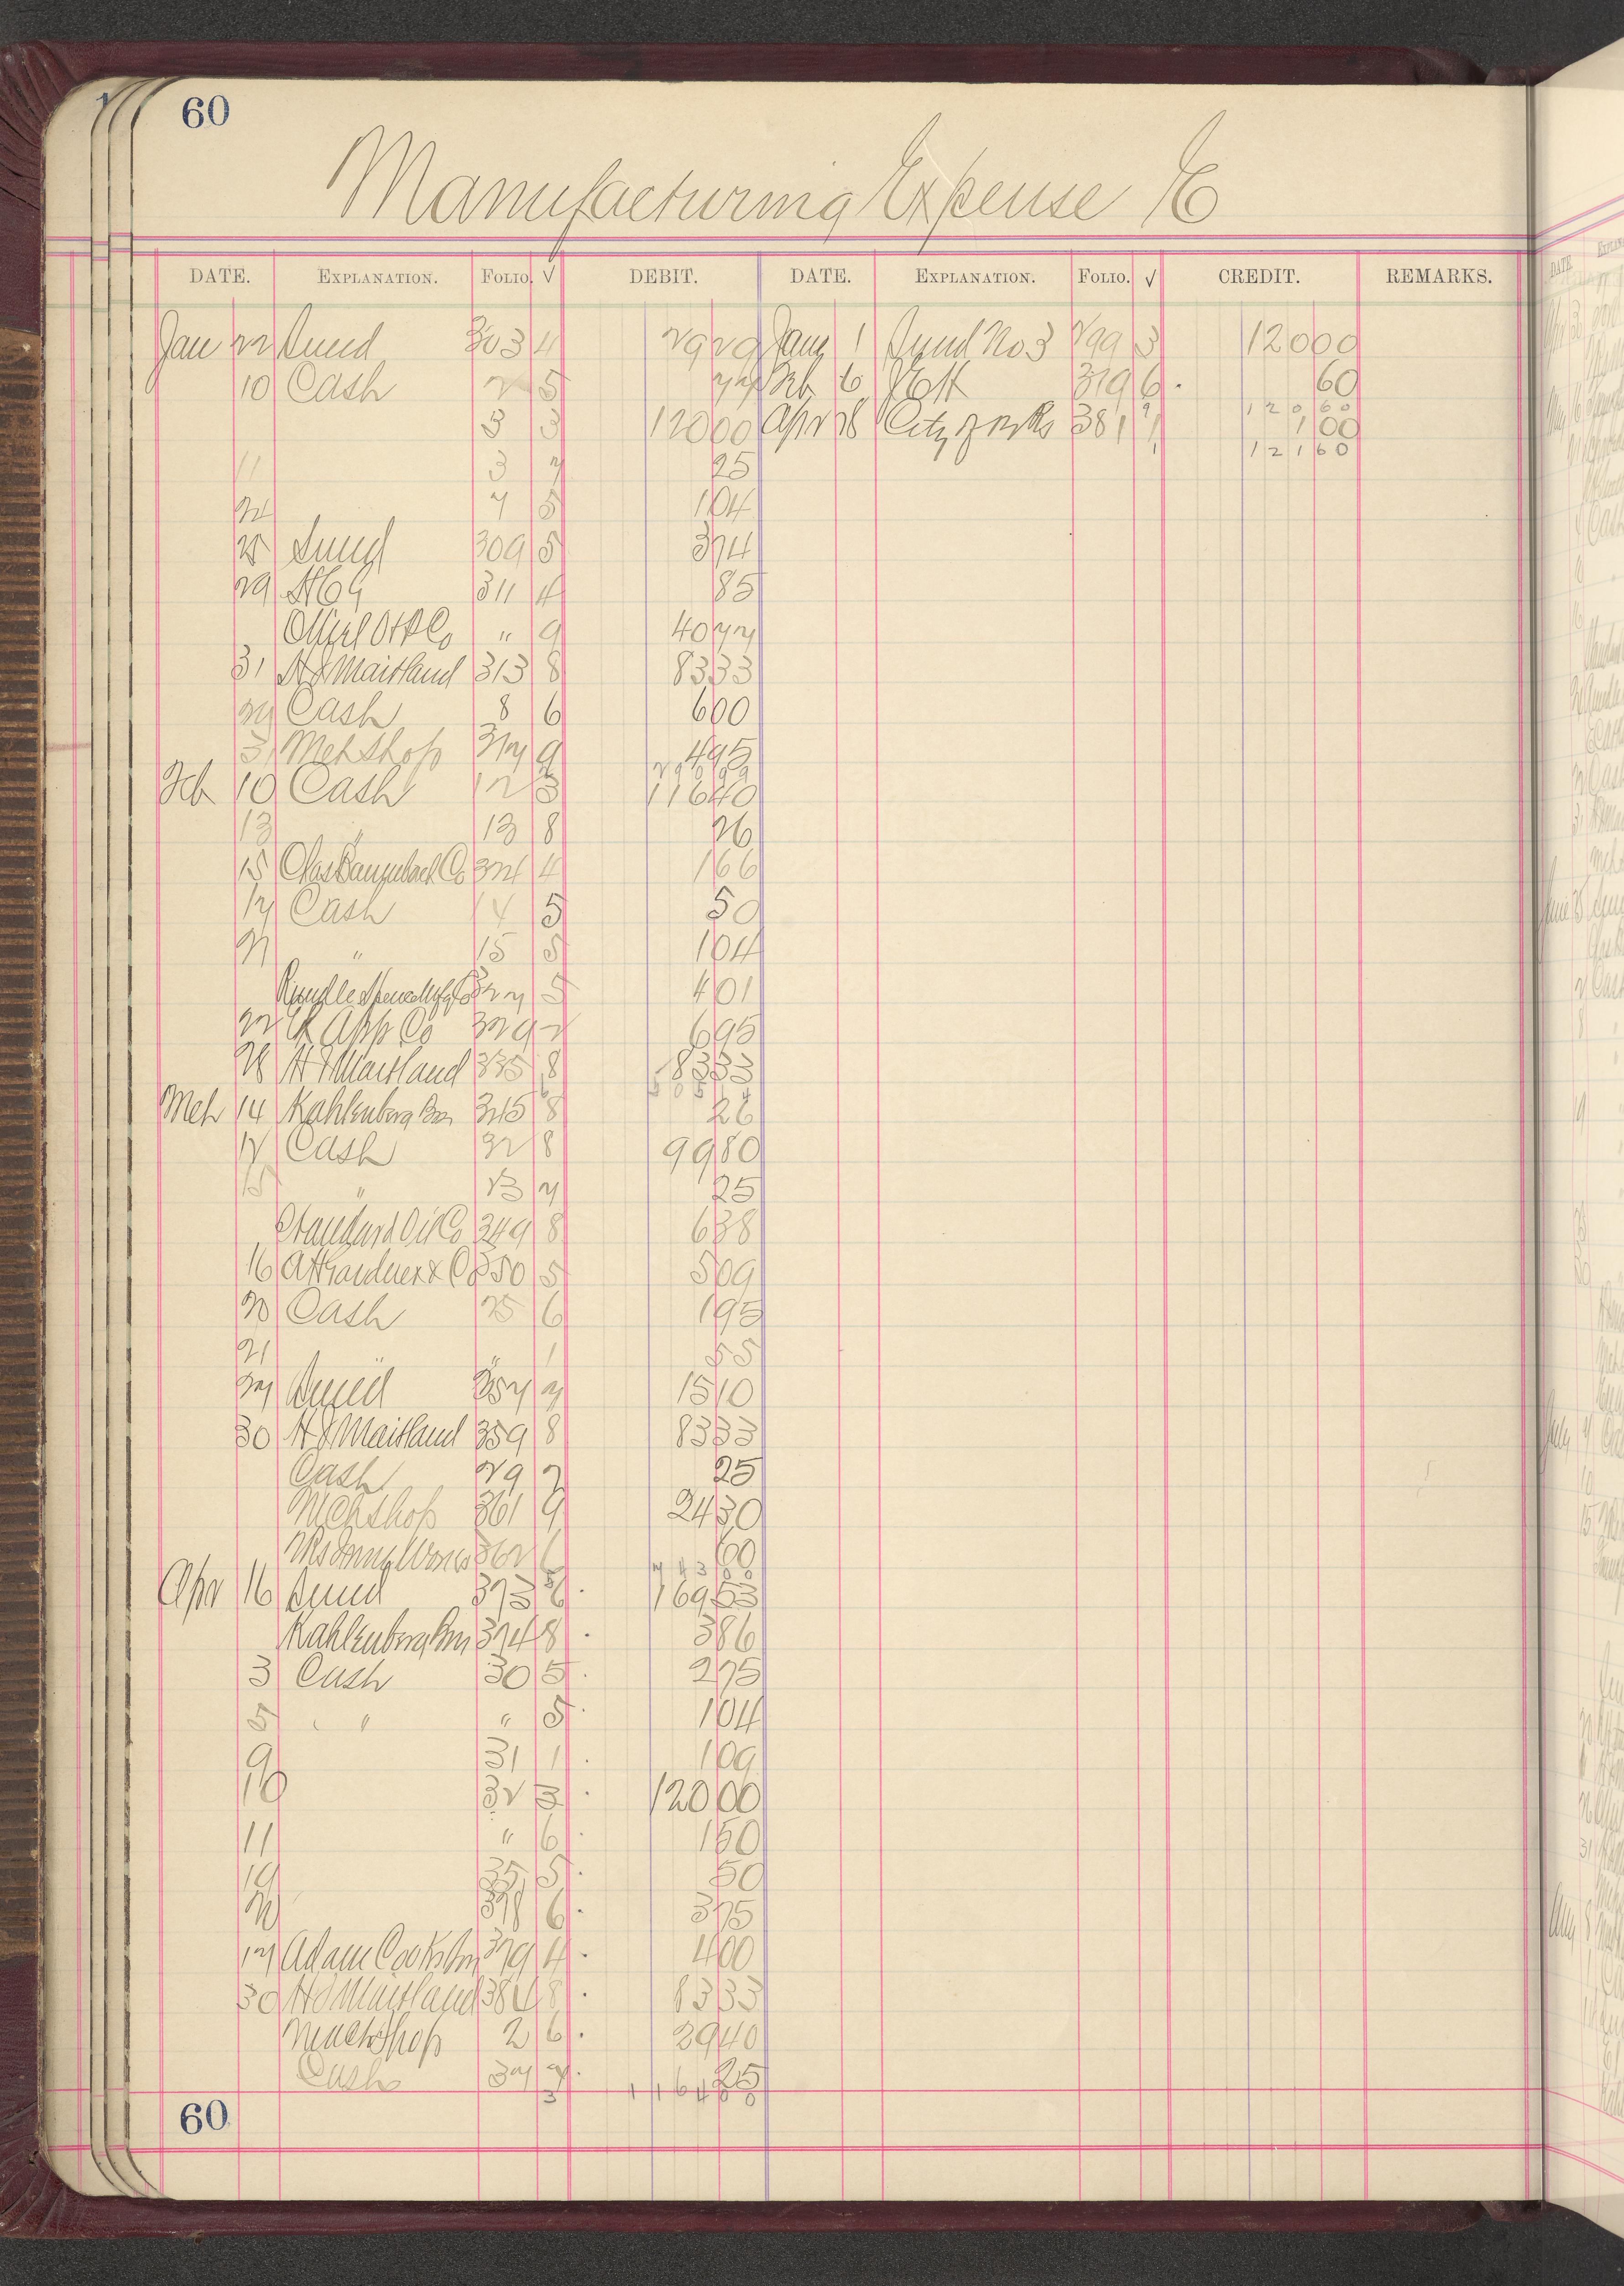 60
Manufacturing Expense
DATE. EXPLANATION. FOLIO. √ DEBIT. DATE. EXPLANATION. FOLIO. √ CREDIT. REMARKS.
Jan 22 Sund 303 4 29 29 Jany 1 Sund No 3 299 3 120 00
10 Cash 2 5 Feb 6 319 6 60
3 3 120 00 Apr 28 City of 381 1 00
120 60
121 60
11 3 7 25
24 7 5 1 04
25 Sund 309 5 3 74
29 311 4 85
" 9 40 77
31 H J Maitland 313 8 83 33
27 Cash 8 6 6 00
31 Mch Shop 317 9 4 95
Feb 10 Cash 12 3 116 40
13 " 13 8 26
15 Chas Co 324 4 1 66
17 Cash 14 5 50
21 " 15 5 1 04
Rundle Mfg Co 327 5 4 01
22 App Co 329 2 6 95
28 H J Maitland 335 8 83 33
Mch 14 Kahlenberg Bros 345 8 26
17 Cash 32 8 99 80
15 " 23 7 25
Standard Oil Co 349 8 6 38
16 A H Gardner & Co 350 5 5 09
20 Cash 25 6 1 95
21 " " 1 55
27 Sund 357 7 15 10
30 H J Maitland 359 8 83 33
Cash 29 7 25
Mch Shop 361 9 24 30
362 60
743
Apr 16 Sund 373 6 169 53
Kahlenberg Bros 374 8 3 86
3 Cash 30 5 2 75
5 " " 5 1 04
9 31 1 1 09
10 32 3 120 00
11 " 6 1 50
19 35 5 50
6 3 75
17 Adam Cooks Sons 379 4 4 00
30 H J Maitland 384 8 83 33
Mach Shop 2 6 39 40
Cash 37 7 25
60